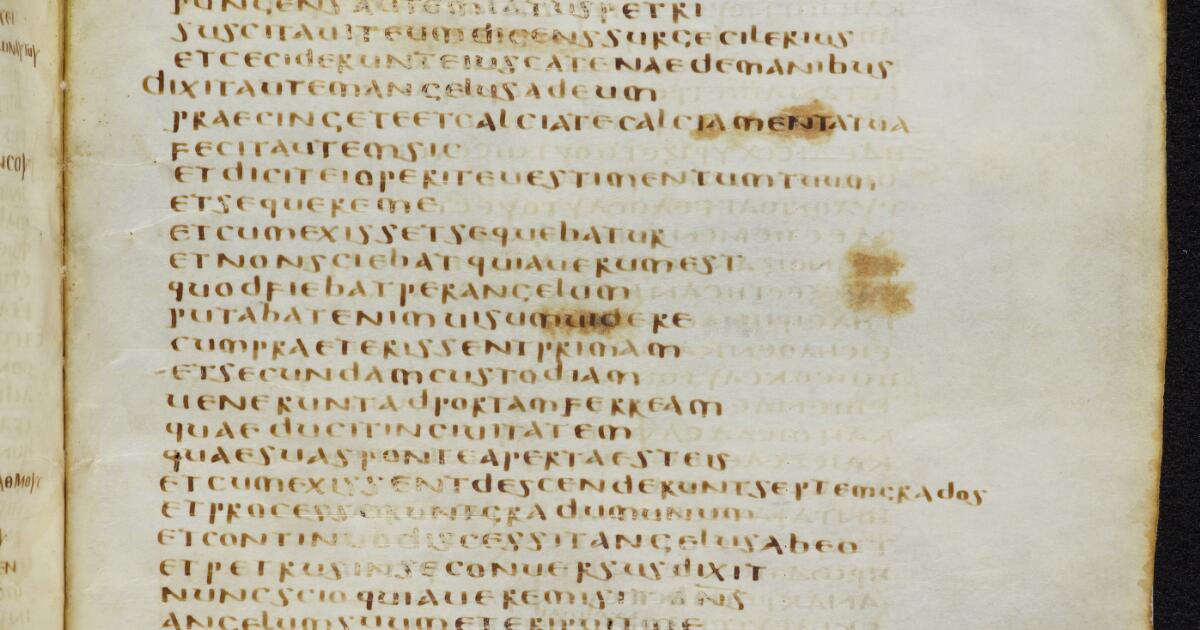 PUNGENSAUTEMLATUSPETRI
SUSCITAUITEUMDICENSSURGECILERIUS
ETCECIDERUNTEIUSCATENAEDEMANIBUS
DIXITAUTEMANGELUSADEUM
PRAECINGETEETCALCIATECALCIAMENTATUA
FECITAUTEMSIC
ETDICITEIOPERITEUESTIMENTUMTUUM
ETSEQUEREME
ETCUMEXISSETSEQUEBATUR
ETNONSCIEBATQUIAUERUMEST
QUODFIEBATPERANGELUM
PUTABATENIMUISUMUIDERE
CUMPRAETERISSENTPRIMAM
ETSECUNDAMCUSTODIAM
UENERUNTADPORTAMFERREAM
QUAEDUCITINCIUITATEM
QUAESUASPONTEAPERTAESTEIS
ETCUMEXISSENTDESCENDERUNTSEPTEMGRADOS
ETPROCESSERUNTGRADUMUNUM
ETCONTINUODISCESSITANGELUSABEO
ETPETRUSINSECONUERSUSDIXIT
NUNCSCIOQUIAUEREMISIT DNS
ANGELUMSUUMETERIPUITME